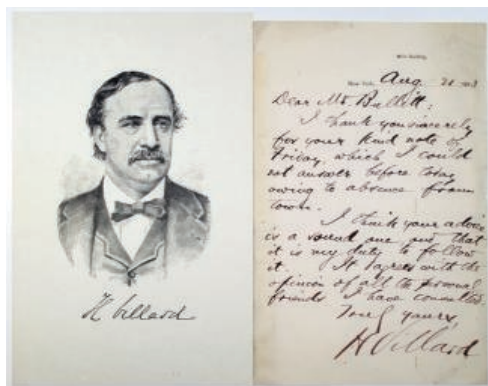 H Villard
New York, Aug. 21
Dear Mr. Bullitt:
I thank you sincerely
for your kind note of
Friday, which I could
not answer before today
owing to absence from
town.
I think your advice
is a sound one and that
it is my duty to follow
it. It agrees with the
opinion of all the personal
friends I have consulted.
yours,
H Villard